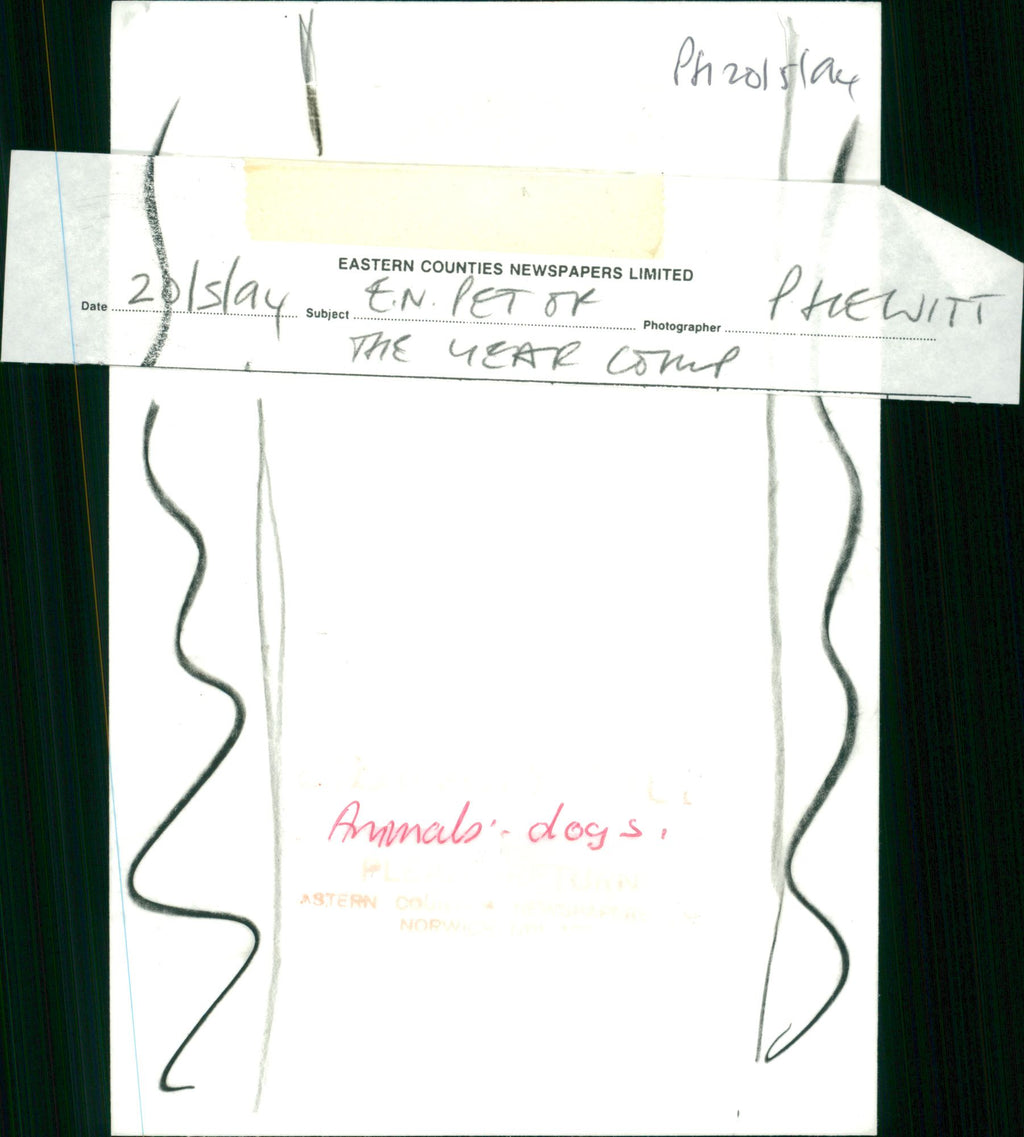 PH 20/5/94
EASTERN COUNTIES NEWSPAPERS LIMITED
Date 20/5/94 Subject E.N. PET OF Photographer P HEWITT
THE YEAR COMP
Animals - dogs.
ASTERN